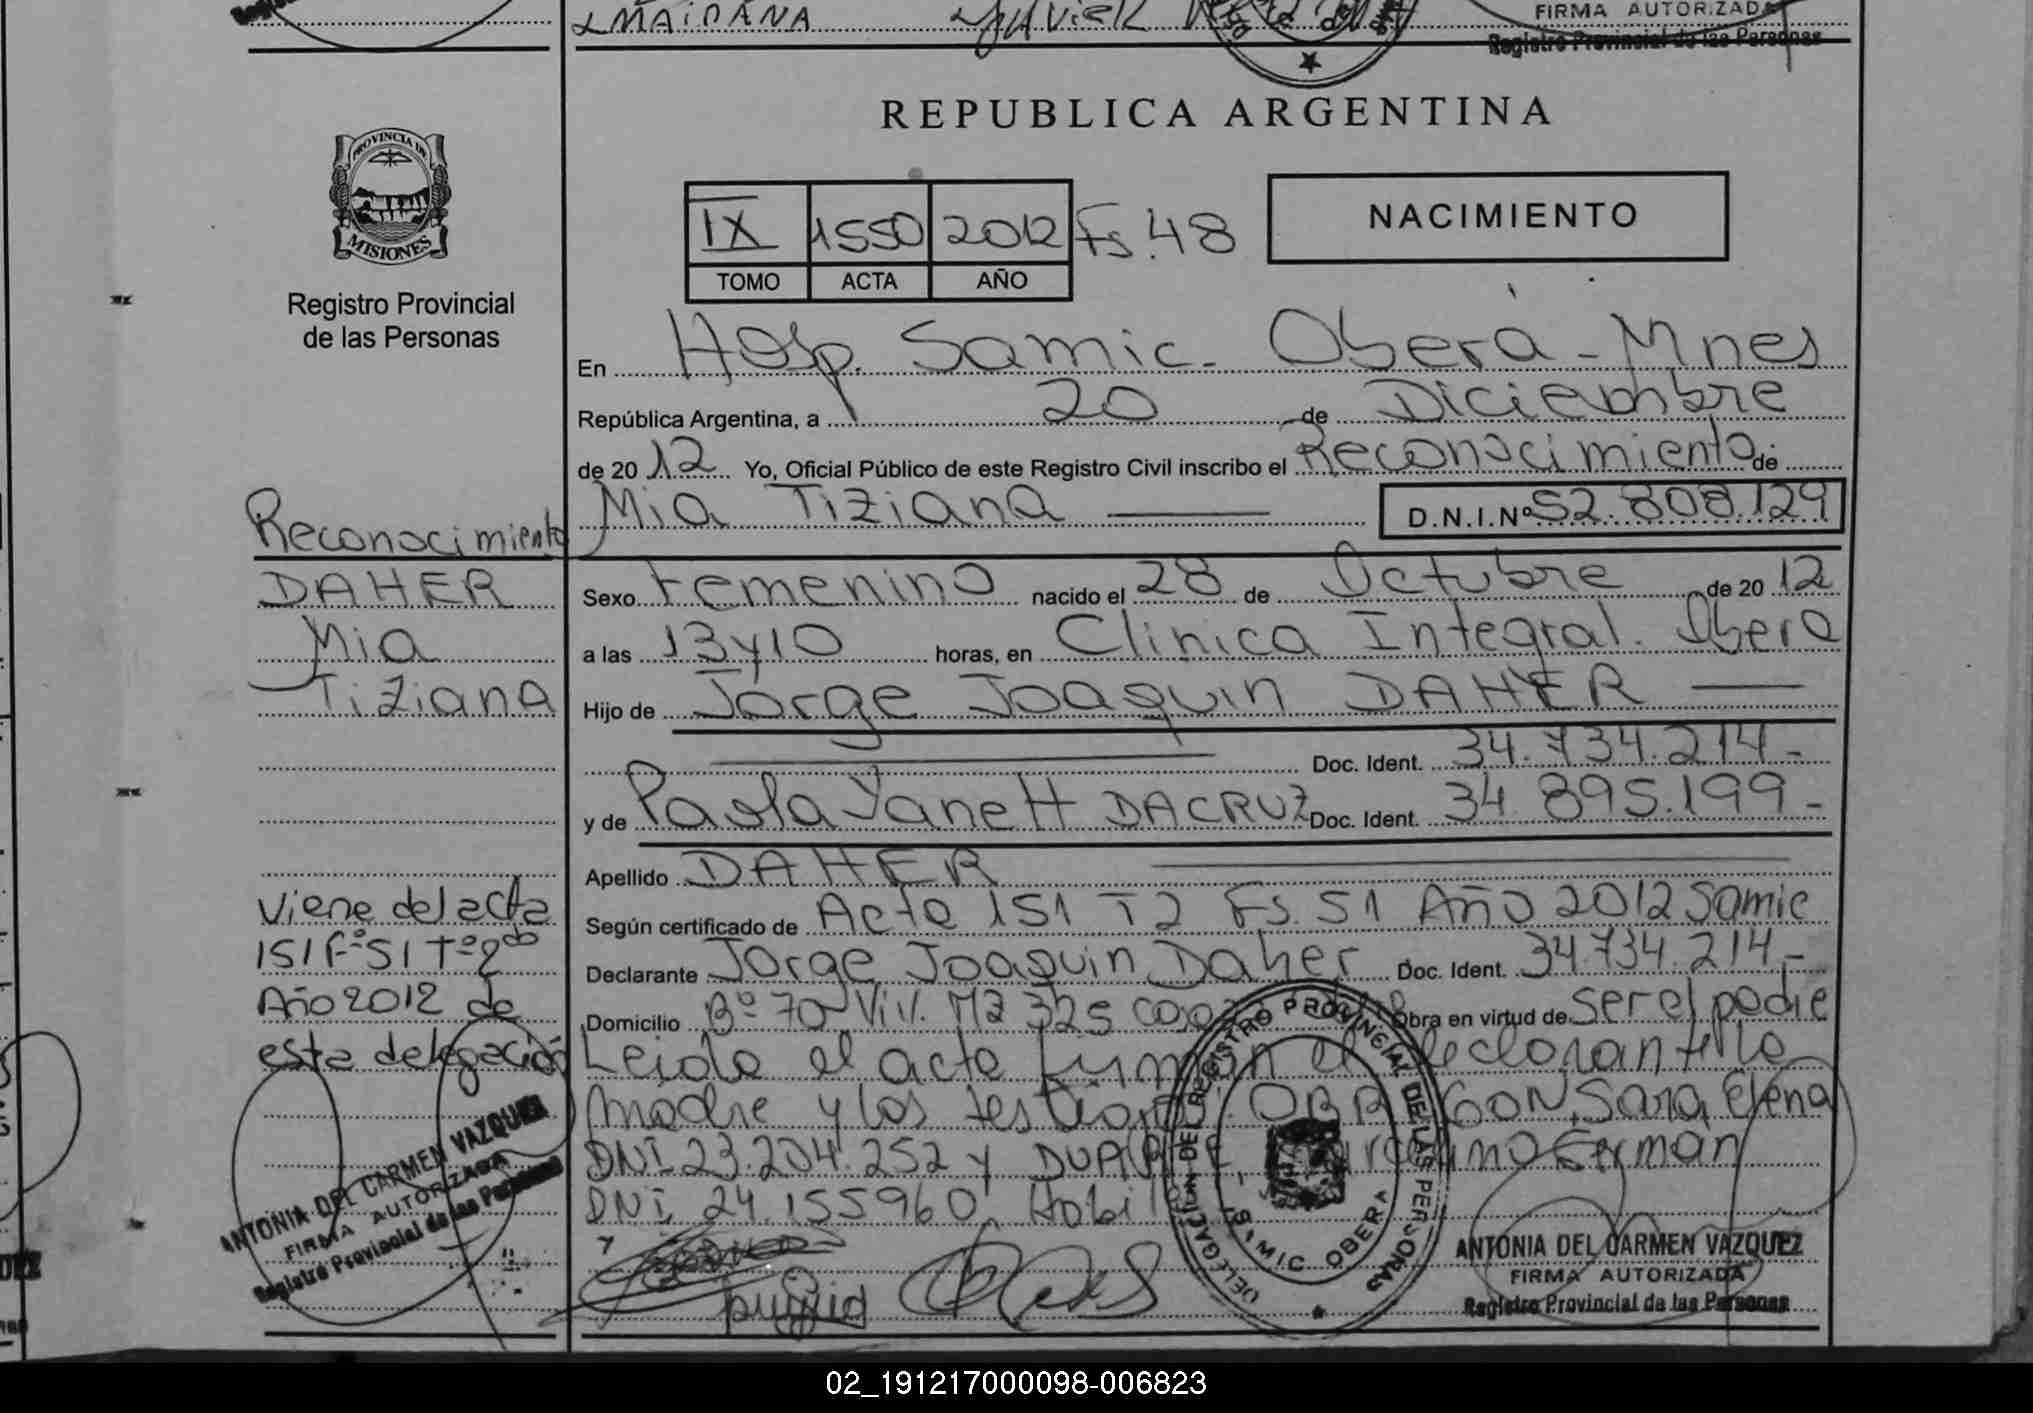 MAIDANA
FIRMA AUTORIZADA
Registro Provincial de las Personas
PROVINCIA DE
MISIONES
Registro Provincial
de las Personas
REPUBLICA ARGENTINA
IX 1550 2012 Fs. 48
TOMO ACTA AÑO
NACIMIENTO
En Hosp. Samic. Oberá - Mnes
República Argentina, a 20 de Diciembre
de 20 12 Yo, Oficial Público de este Registro Civil inscribo el Reconocimiento de
Mia Tiziana D.N.I.Nº 52.808.129
Reconocimiento
DAHER
Mia
Tiziana
Sexo Femenino nacido el 28 de Octubre de 20 12
a las 13 y 10 horas, en Clinica Integral. Obera
Hijo de Jorge Joaquin DAHER
Doc. Ident. 34.734.214-
y de Paola Yanett DACRUZ Doc. Ident. 34.895.199-
Apellido DAHER
Según certificado de Acta 151 T2 Fs. 51 Año 2012 Samic
Declarante Jorge Joaquin Daher Doc. Ident. 34.734.214-
Domicilio Bº 70 Viv. Mz 325 Obra en virtud de ser el padre
Leida el acta firman el declarante la
madre y los testigos: Sara Elena
DNI. 23.204.252 y German
DNI. 24.155960
Viene del acta
151 Fº 51 Tº 2do
Año 2012 de
esta delegación
ANTONIA DEL CARMEN VAZQUEZ
FIRMA AUTORIZADA
Registro Provincial de las Personas
DELEGACION DE REGISTRO PROVINCIAL DE LAS PERSONAS
SAMIC OBERA
ANTONIA DEL CARMEN VAZQUEZ
FIRMA AUTORIZADA
Registro Provincial de las Personas
02_191217000098-006823